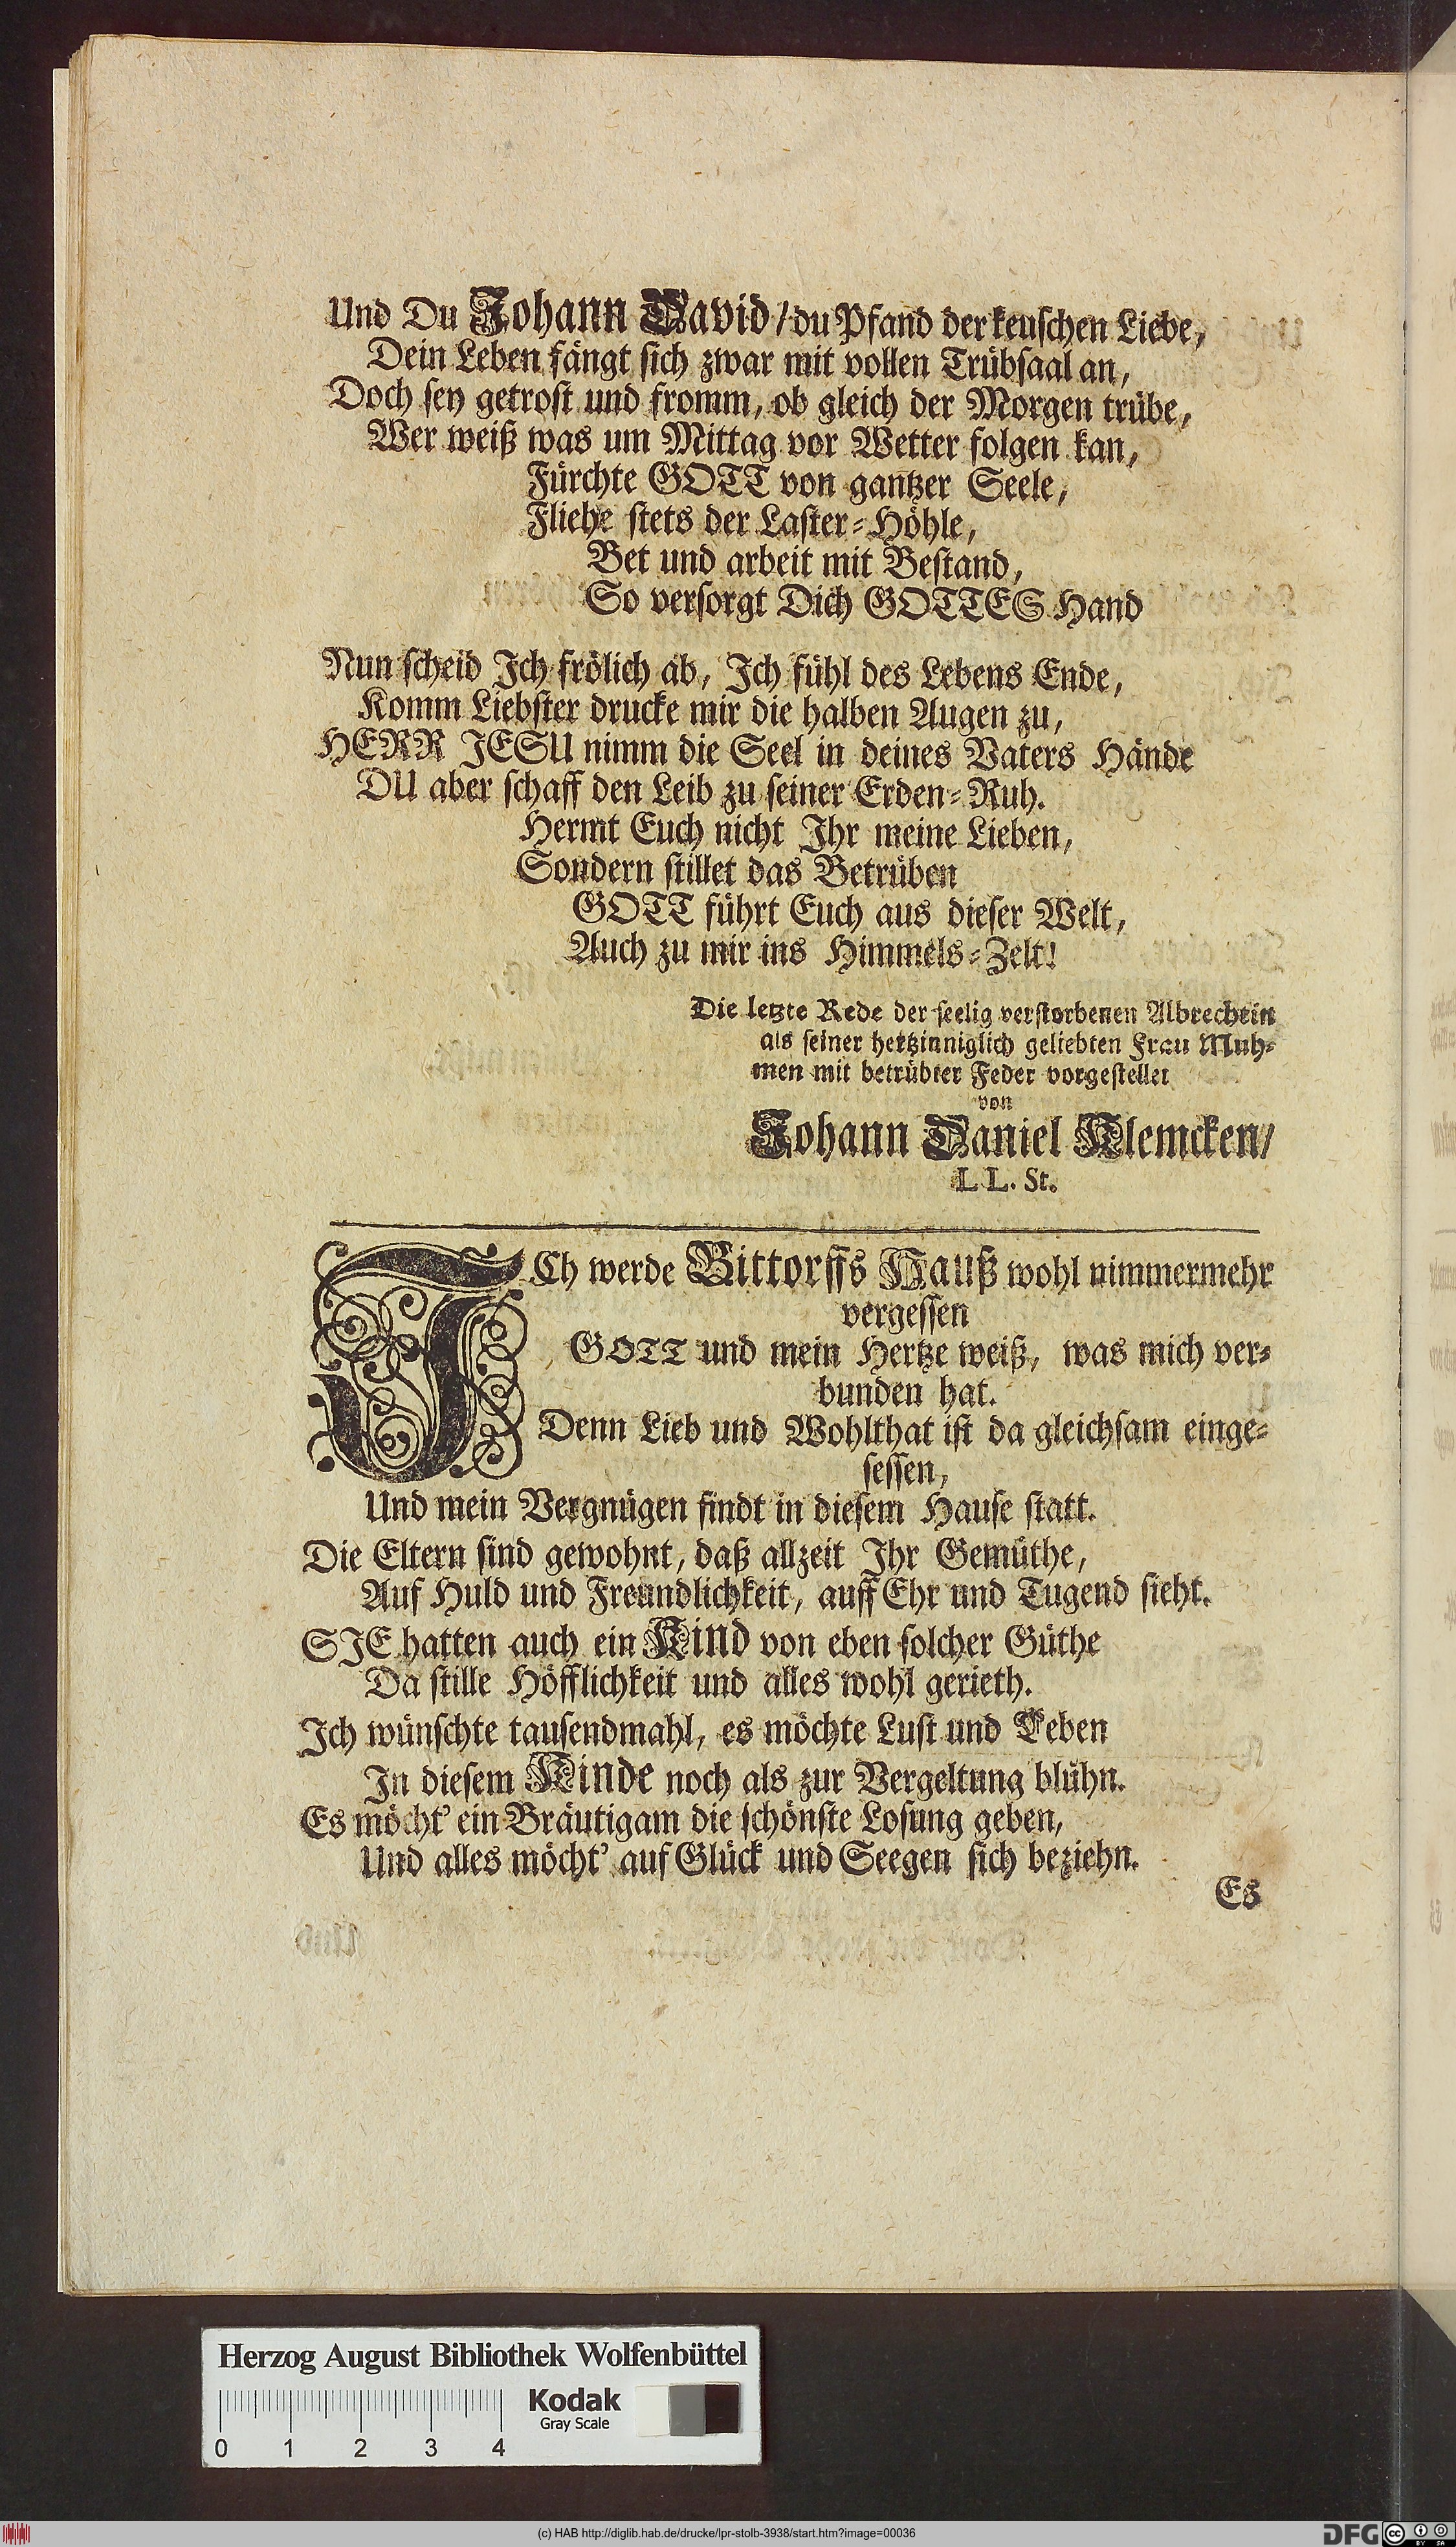 Und Du Johann David/ du Pfand der keuschen Liebe,
Dein Leben fängt sich zwar mit vollen Trübsaal an,
Doch sey getrost und fromm, ob gleich der Morgen trübe,
Wer weiß was um Mittag vor Wetter folgen kan,
Fürchte GOTT von gantzer Seele,
Fliehe stets der Laster-Höhle,
Bet und arbeit mit Bestand,
So versorgt Dich GOTTES Hand
Nun scheid Ich frölich ab, Ich fühl des Lebens Ende,
Komm Liebster drucke mir die halben Augen zu,
HERR JESU nimm die Seel in deines Vaters Hände
DU aber schaff den Leib zu seiner Erden-Ruh.
Hermt Euch nicht Ihr meine Lieben,
Sondern stillet das Betrüben
GOTT führt Euch aus dieser Welt,
Auch zu mir ins Himmels-Zelt!
Die letzte Rede der seelig verstorbenen Albrechtin
als seiner hertzinniglich geliebten Frau Muh-
men mit betrübter Feder vorgestellet
von
Johann Daniel Klemcken/
L L. St.
ICh werde Bittorffs Hauß wohl nimmermehr
vergessen
GOTT und mein Hertze weiß, was mich ver-
bunden hat.
Denn Lieb und Wohlthat ist da gleichsam einge-
sessen,
Und mein Vergnügen findt in diesem Hause statt.
Die Eltern sind gewohnt, daß allzeit Ihr Gemüthe,
Auf Huld und Freundlichkeit, auff Ehr und Tugend sieht.
SIE hatten auch ein Kind von eben solcher Güthe
Da stille Höfflichkeit und alles wohl gerieth.
Ich wünschte tausendmahl, es möchte Lust und Leben
In diesem Kinde noch als zur Vergeltung blühn.
Es möcht' ein Bräutigam die schönste Losung geben,
Und alles möcht' auf Glück und Seegen sich beziehn.
Es
Herzog August Bibliothek Wolfenbüttel
Kodak
Gray Scale
0 1 2 3 4
(c) HAB http://diglib.hab.de/drucke/lpr-stolb-3938/start.htm?image=00036
DFG
BY SA